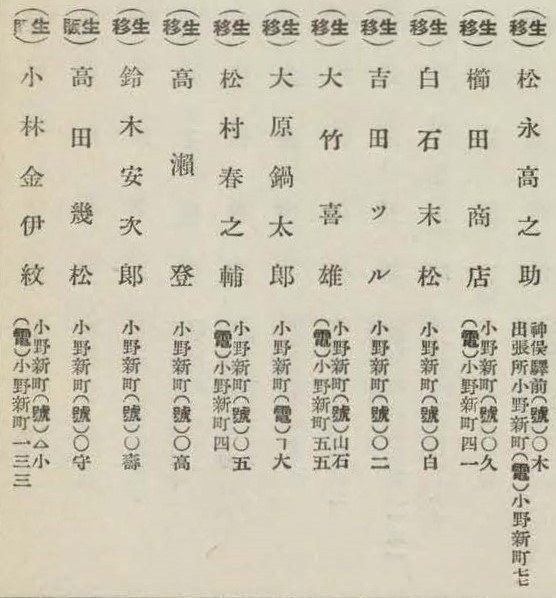 (移生)松永高之助 神俣驛前(號)〇木
出張所小野新町(電)小野新町七
(移生)櫛田商店 小野新町(號)〇久
(電)小野新町四一
(移生)白石末松 小野新町(號)〇白
(移生)吉田ツル 小野新町(號)〇二
(移生)大竹喜雄 小野新町(號)山石
(電)小野新町五五
(移生)大原鍋太郎 小野新町(電)㇕大
(移生)松村春之輔 小野新町(號)〇五
(電)小野新町四
(移生)高瀨登 小野新町(號)〇高
(移生)鈴木安次郎 小野新町(號)〇壽
(販生)高田幾松 小野新町(號)〇守
(販生)小林金伊紋 小野新町(號)△小
(電)小野新町一三三